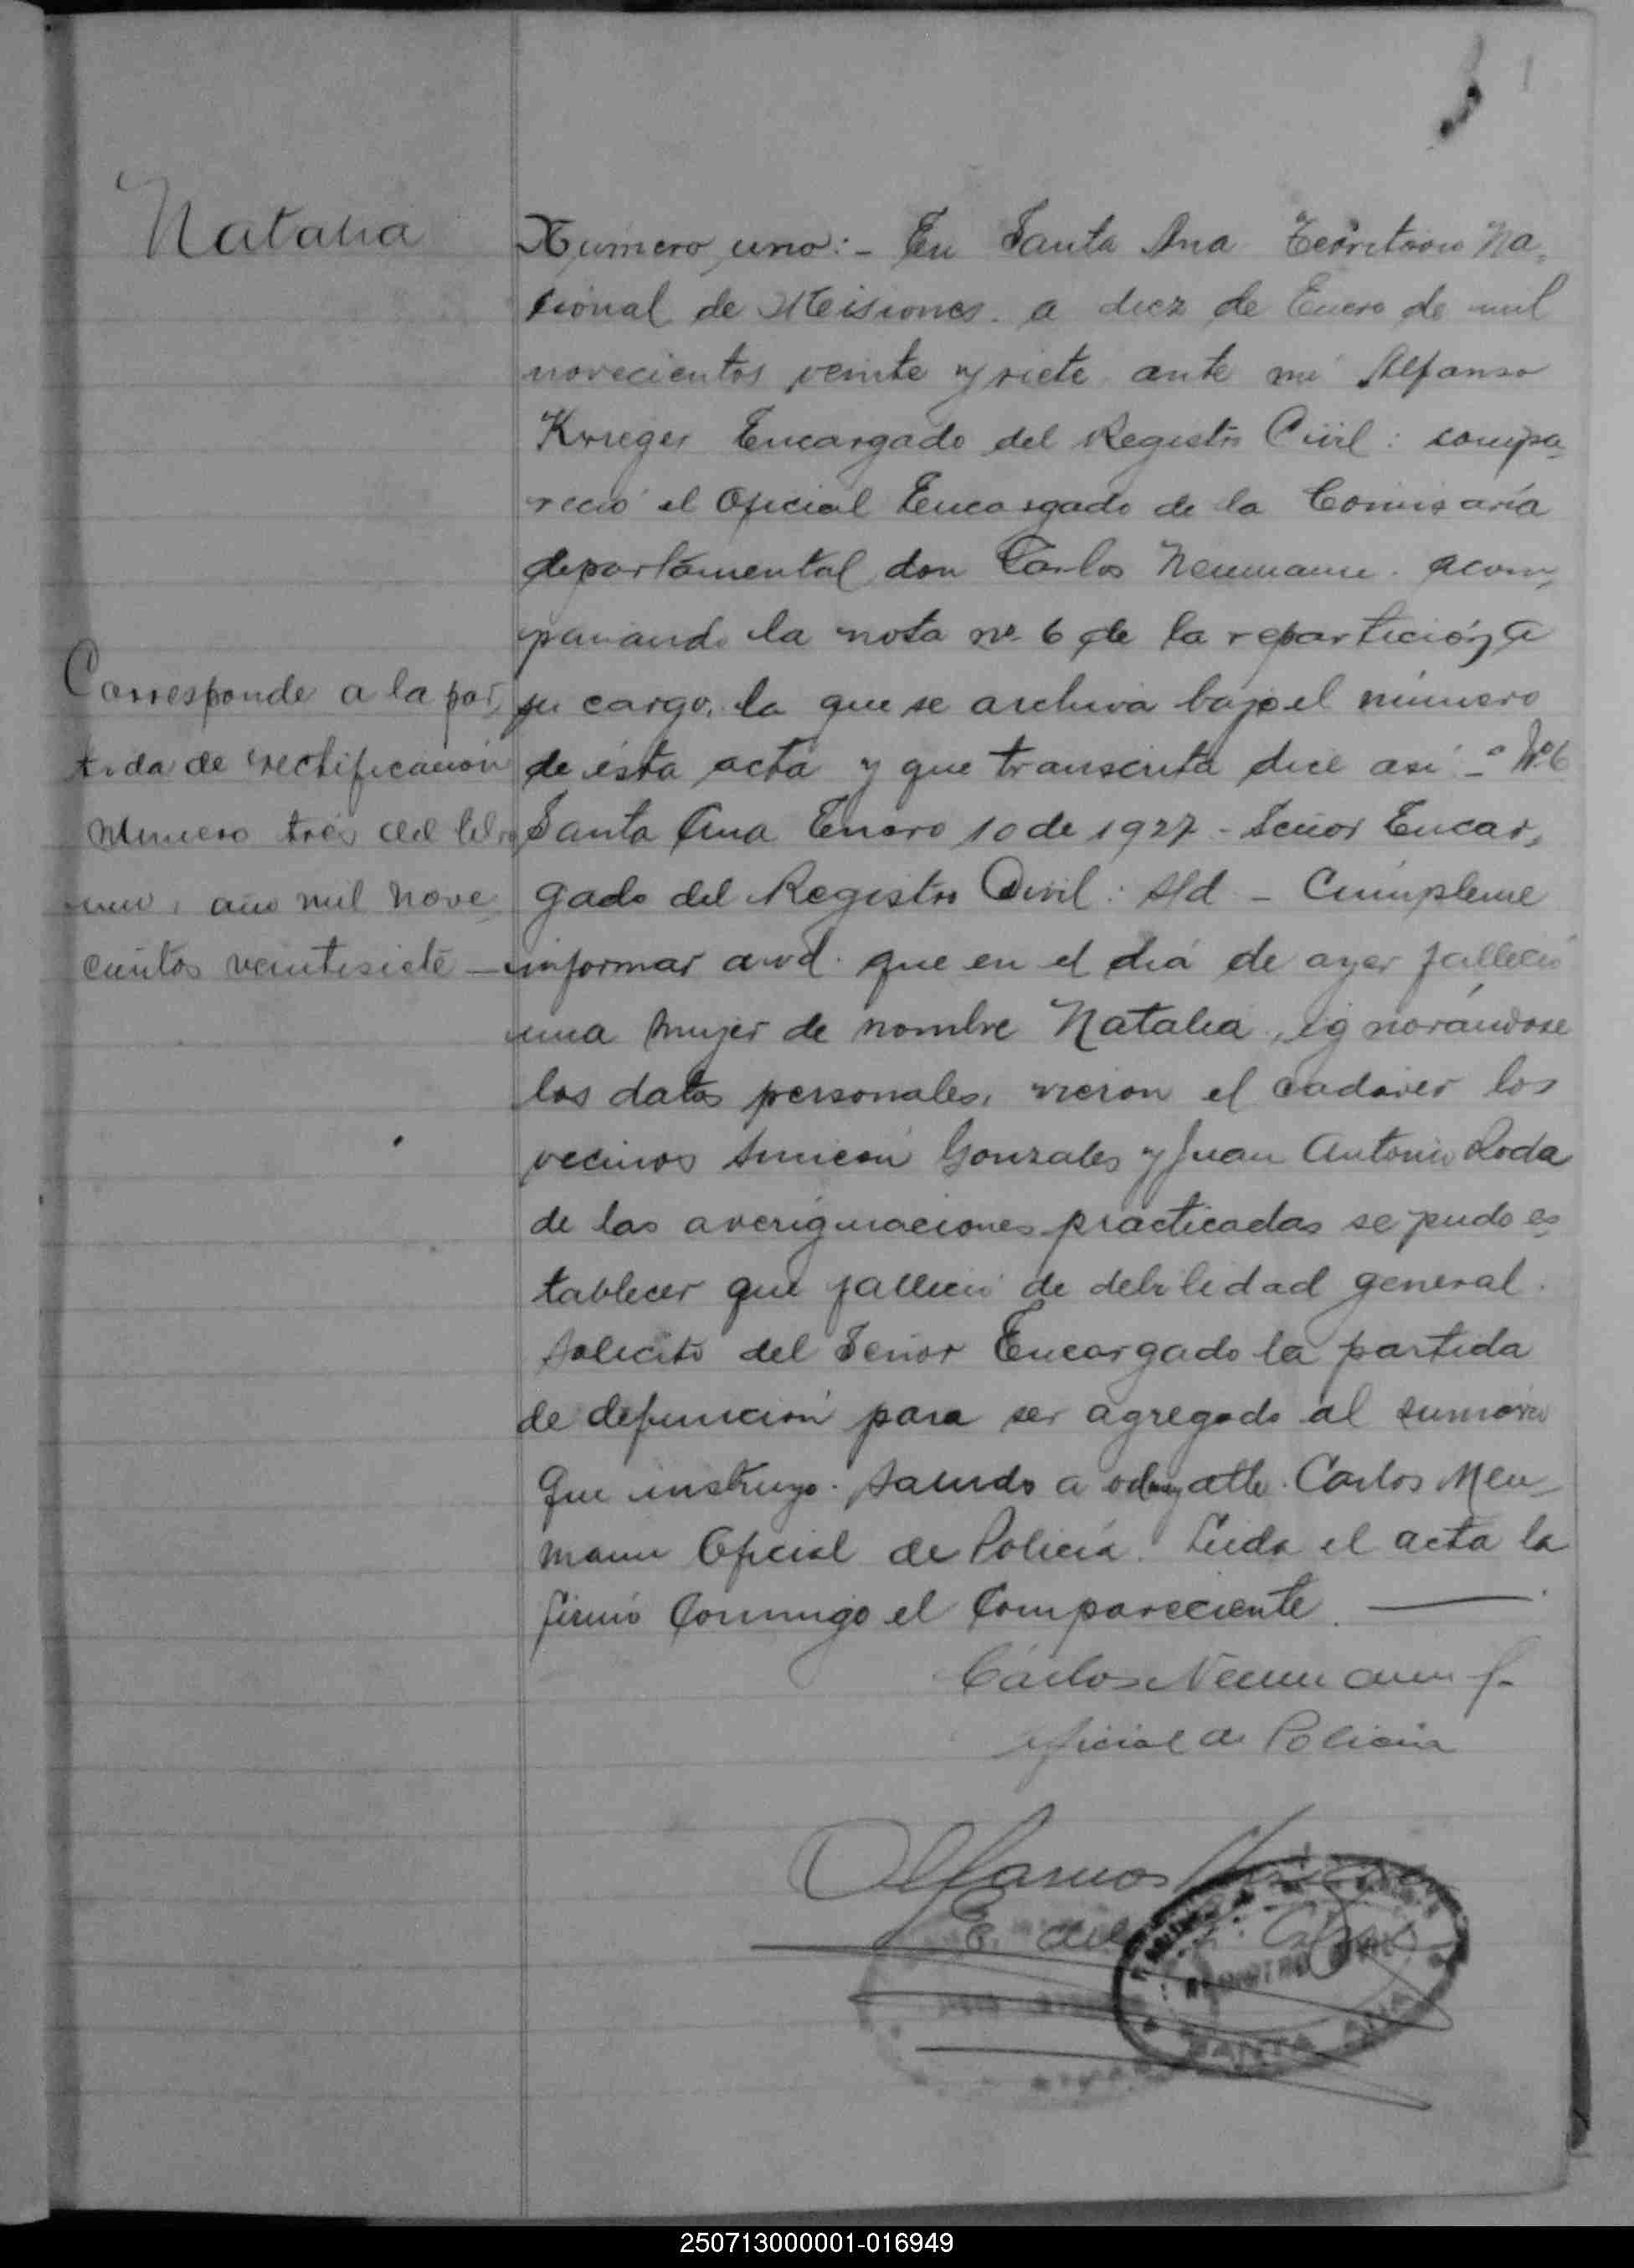 1
Natalia
Número uno:- En Santa Ana Territorio Na-
cional de Misiones a diez de Enero de mil
novecientos veinte y siete ante mi Alfonso
Krieger Encargado del Registro Civil: compa-
reció el Oficial Encargado de la Comisaría
departamental don Carlos Neumann. acom-
pañando la nota nº 6 de la repartición a
su cargo, la que se archiva bajo el número
de ésta acta y que transcrita dice así - "Nº6
Santa Ana Enero 10 de 1927 - Señor Encar-
gado del Registro Civil: S/d - Cúmpleme
informar a vd. que en el día de ayer falleció
una mujer de nombre Natalia, ignorándose
los datos personales, vieron el cadáver los
vecinos Simeón Gonzales y Juan Antonio Roda
de las averiguaciones practicadas se pudo es-
tablecer que falleció de debilidad general.
Solicito del Señor Encargado la partida
de defunción para ser agregado al sumario
que instruyo. Saludo a vd muy atte. Carlos Neu-
mann Oficial de Policía. Leída el acta la
firmó conmigo el compareciente.
Corresponde a la par-
tida de rectificación
número tres del libro
uno, año mil nove-
cientos veintisiete -
Carlos Neumann f.
Oficial de Policia
Alfonso Krieger
E. del R. Civil
REGISTRO CIVIL
SANTA ANA
250713000001-016949